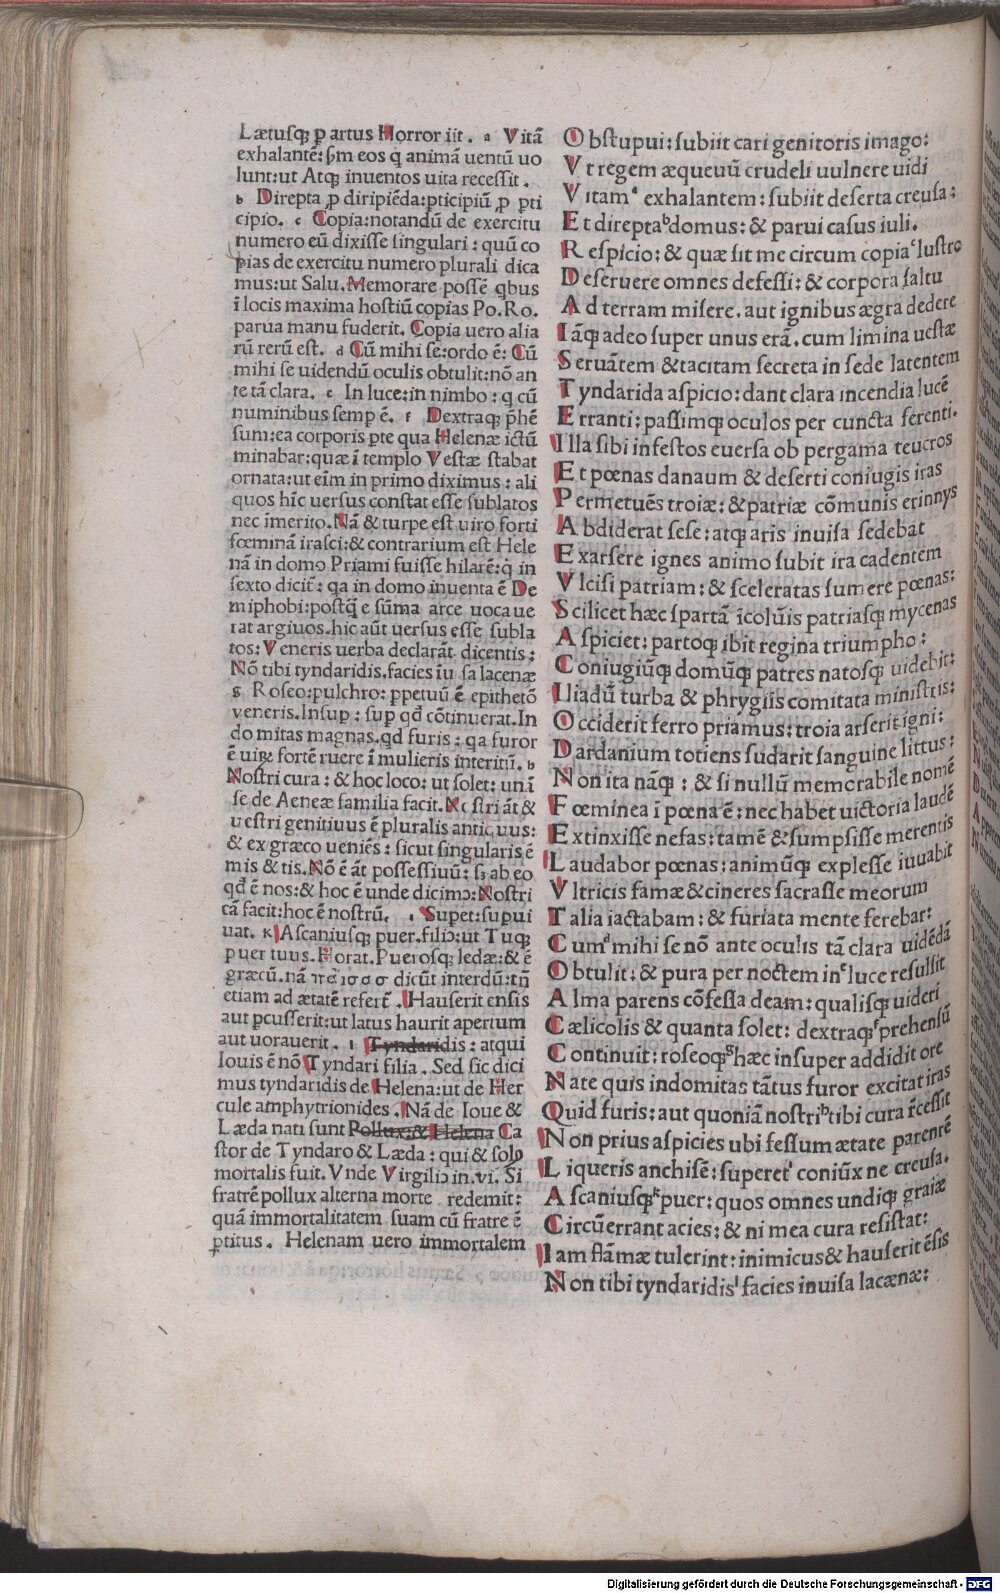 Lætusq; ꝑ artus Horror iit . a Vitā
exhalantē: ẜm eos q̄ animā uentū uo
lunt: ut Atq; inuentos uita recessit .
b Direpta ꝓ diripiēda: pticipiū ꝓ pti
cipio. c Copia: notandū de exercitu
numero eū dixisse singulari : quū co
pias de exercitu numero plurali dica
mus: ut Salu. Memorare possē qbus
ī locis maxima hostiū copias Po. Ro.
parua manu fuderit. Copia uero alia
rū rerū est. d Cū mihi se: ordo ē: Cū
mihi se uidendū oculis obtulit: nō an
te tā clara. e In luce: in nimbo : q cū
numinibus semp ē. f Dextraq; p̄hē
sum: ea corporis pte qua Helenæ ictū
minabar: quæ ī templo Vestæ stabat
ornata: ut eīm in primo diximus : ali
quos hīc uersus constat esse sublatos
nec īmerito. Nā & turpe est uiro forti
fœminā irasci: & contrarium est Hele
nā in domo Priami fuisse hilarē: q̄ in
sexto dicit̄ : qa in domo inuenta ē De
miphobi: postq̄ e sūma arce uocaue
rat argiuos. hic aūt uersus esse subla
tos: Veneris uerba declarāt dicentis :
Nō tibi tyndaridis. facies īu sa lacenæ
g Roseo: pulchro: ppetuū ē epithetō
veneris. Insup : sup qd̄ cōtinuerat. In
do mitas magnas. qd furis : qa furor
ē uiꝝ fortē ruere ī mulieris interitū. h
Nostri cura : & hoc loco: ut solet: unā
se de Aeneæ familia facit. Nostri āt &
uestri genitiuus ē pluralis antiquus:
& ex græco ueniēs : sicut singularis ē
mis & tis. Nō ē āt possessiuū: sꝫ ab eo
qd̄ ē nos: & hoc ē unde dicimꝰ: Nostri
cā facit: hoc ē nostrū. i Supet: supui
uat. k Ascaniusq; puer. filiꝰ: ut Tuq;
puer tuus. Horat. Puerosq; ledæ: & ē
græcū. nā dicūt interdū: tn̄
etiam ad ætatē refert̄ . Hauserit ensis
aut pcusserit: ut latus haurit apertum
aut uorauerit . l Tyndaridis : atqui
Iouis ē nō Tyndari filia . Sed sic dici
mus tyndaridis de Helena: ut de Her
cule amphytrionides . Nā de Ioue &
Læda nati sunt Pollux: & Helena Ca
stor de Tyndaro & Læda : qui & solo
mortalis fuit. Vnde Virgiliꝰ in. vi. Si
fratrē pollux alterna morte redemit:
quā immortalitatem suam cū fratre ē
ꝑtitus. Helenam uero immortalem
Obstupui: subiit cari genitoris imago:
Vt regem æqueuū crudeli uulnere uidi
Vitam a exhalantem: subiit deserta creusa:
Et direpta b domus: & parui casus iuli.
Respicio: & quæ sit me circum copia c lustro
Deseruere omnes defessi: & corpora saltu
Ad terram misere. aut ignibus ægra dedere
Iāq; adeo super unus erā. cum limina uestæ
Seruātem & tacitam secreta in sede latentem
Tyndarida aspicio: dant clara incendia lucē
Erranti: passimq; oculos per cuncta ferenti.
Illa sibi infestos euersa ob pergama teucros
Et pœnas danaum & deserti coniugis iras
Permetuēs troiæ: & patriæ cōmunis erinnys
Abdiderat sese: atq; aris inuisa sedebat
Exarsere ignes animo subit ira cadentem
Vlcisi patriam: & sceleratas sumere pœnas:
Scilicet hæc spartā īcolūis patriasq; mycenas
Aspiciet: partoq; ibit regina triumpho:
Coniugiūq; domūq; patres natosq; uidebit:
Iliadū turba & phrygiis comitata ministris:
Occiderit ferro priamus: troia arserit igni:
Dardanium totiens sudarit sanguine littus:
Non ita nāq; : & si nullū memorabile nomē
Fœminea ī pœna ē: nec habet uictoria laudē
Extinxisse nefas: tamē & sumpsisse merentis
Laudabor pœnas: animūq; explesse iuuabit
Vltricis famæ & cineres sacrasse meorum
Talia iactabam: & furiata mente ferebar:
Cum d mihi se nō ante oculis tā clara uidēdā
Obtulit: & pura per noctem in e luce refulsit
Alma parens cōfessa deam: qualisq; uideri
Cælicolis & quanta solet: dextraq; f prehensū
Continuit: roseoq; g hæc insuper addidit ore
Nate quis indomitas tātus furor excitat iras
Quid furis: aut quoniā nostri h tibi cura r̄cessit
Non prius aspicies ubi fessum ætate parenrē
Liqueris anchisē: superet i coniūx ne creusa.
Ascaniusq; k puer: quos omnes undiq; graiæ
Circūerrant acies: & ni mea cura resistat:
Iam flāmæ tulerint: inimicus & hauserit ēsis
Non tibi tyndaridis l facies inuisa lacænæ:
Digitalisierung gefördert durch die Deutsche Forschungsgemeinschaft - DFG